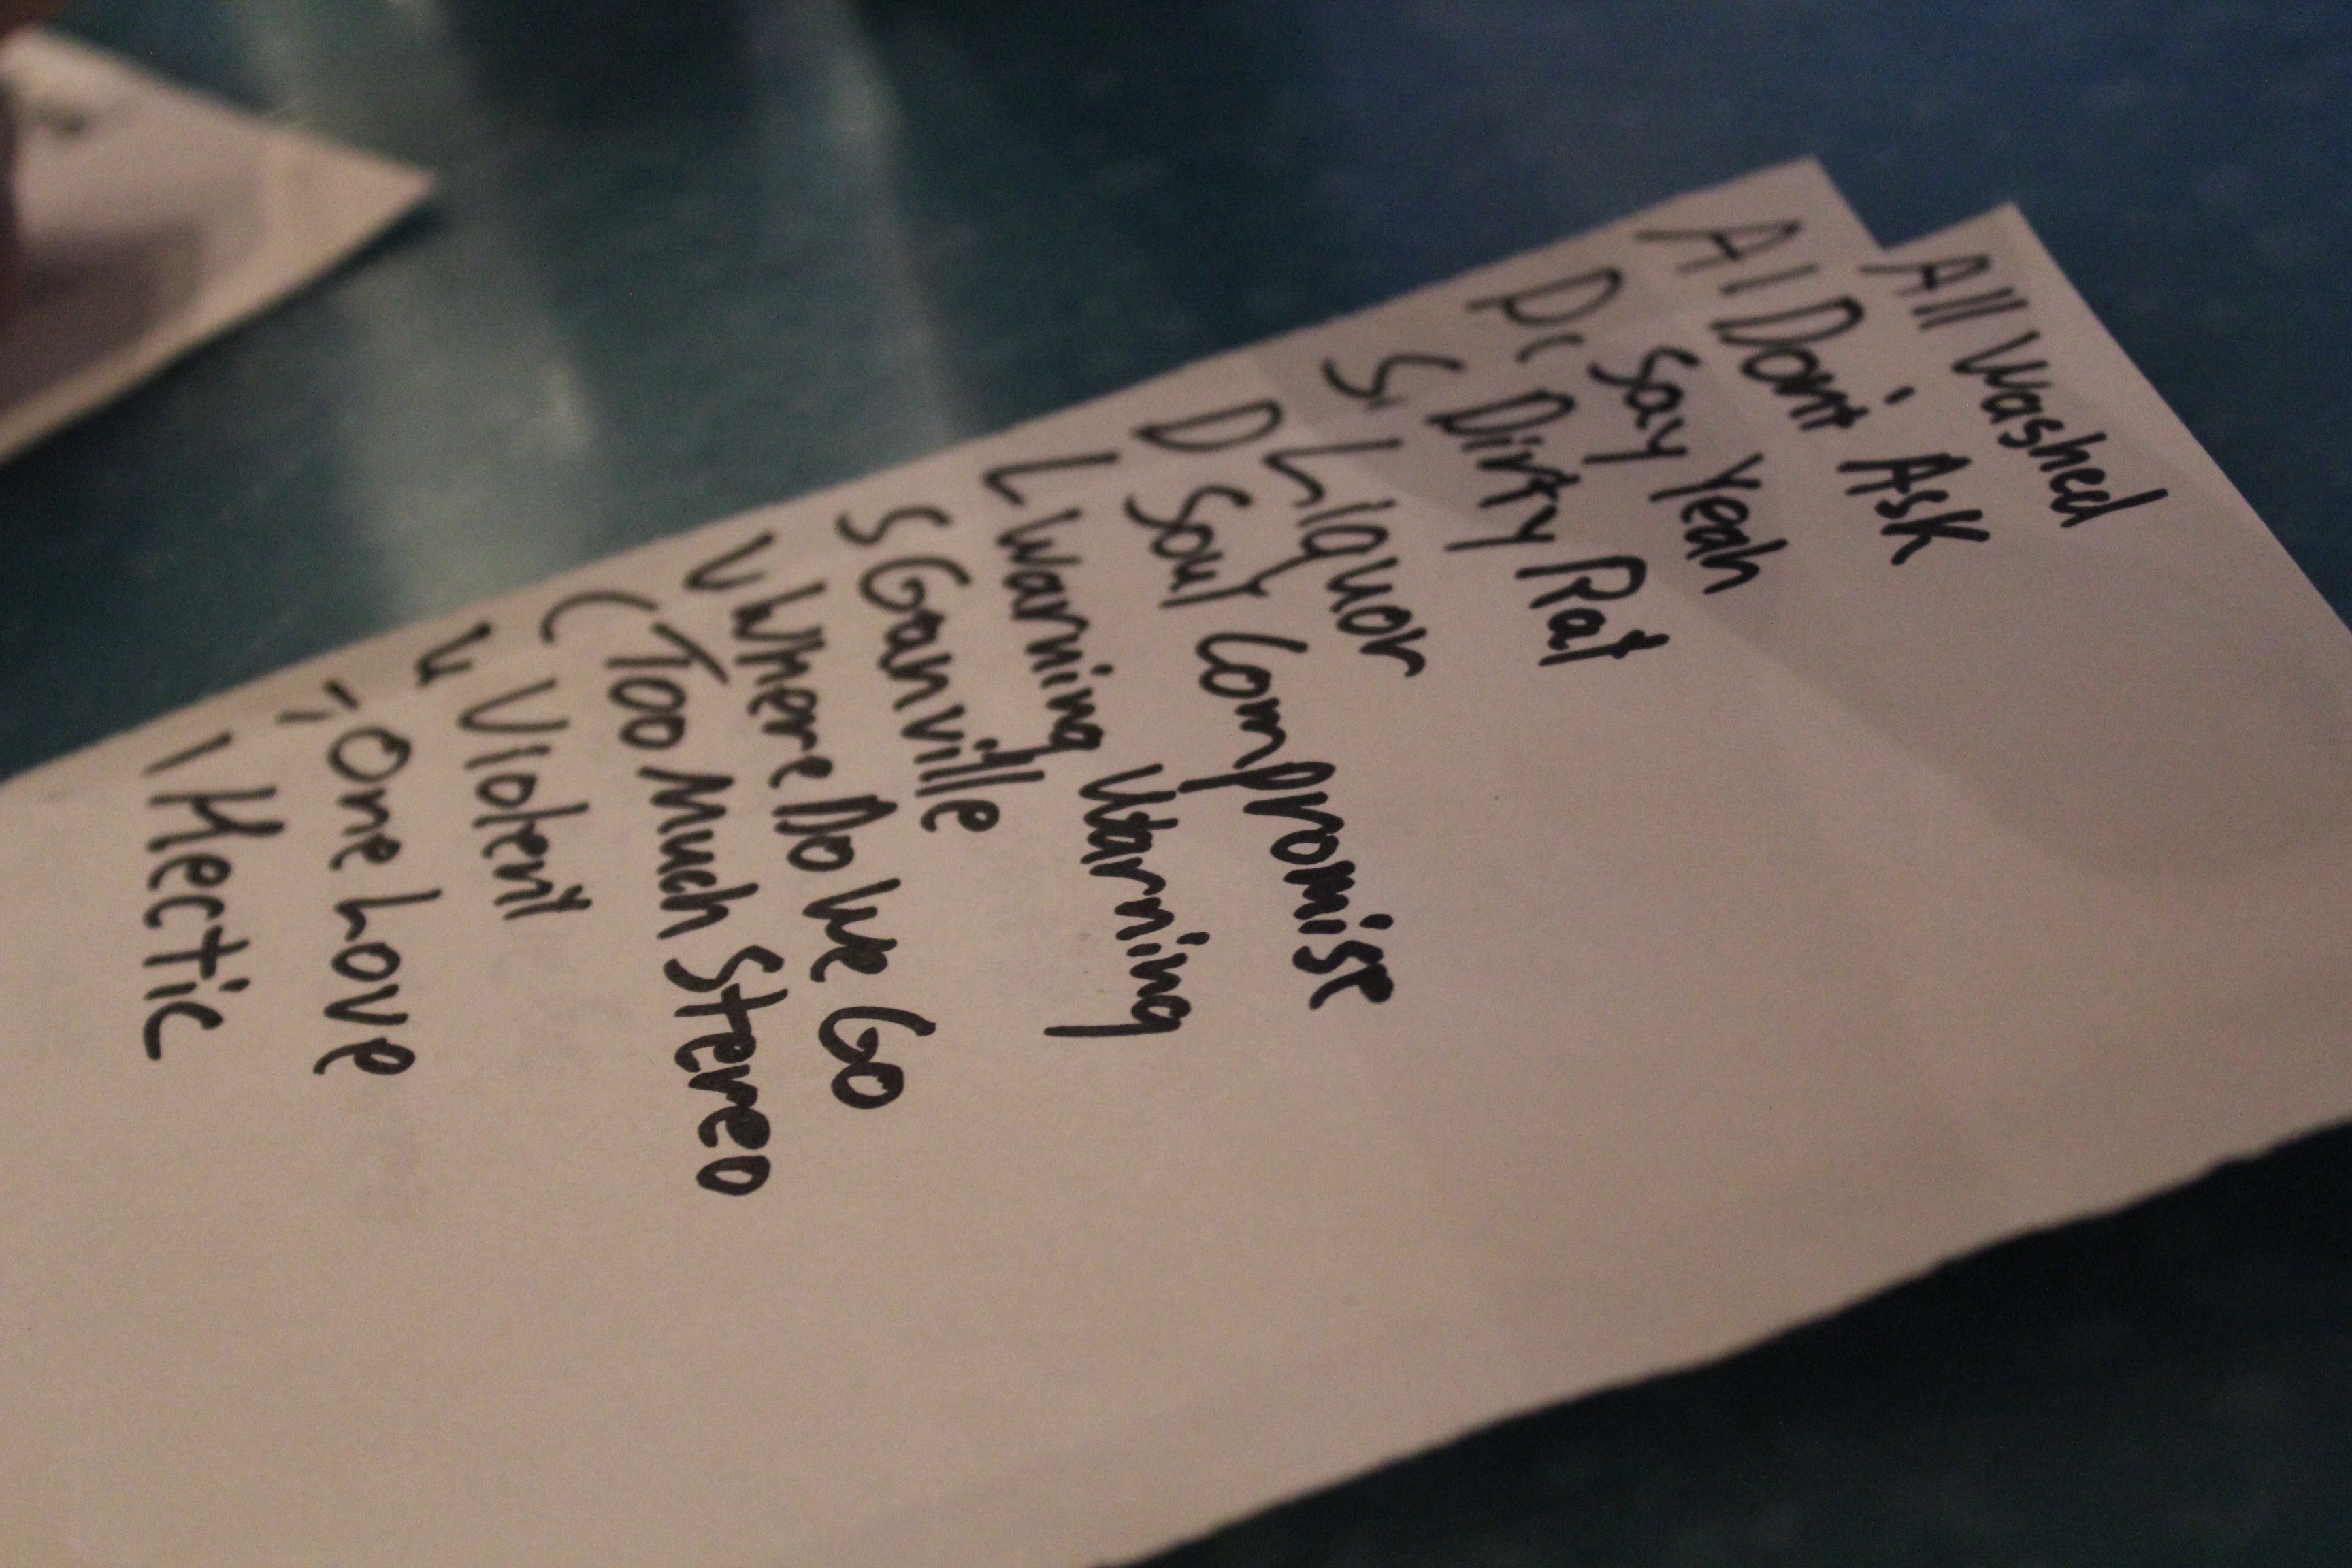 All Washed
Don't Ask
Say Yeah
Dirty Rat
Liquor
Soul Compromise
Warning Warning
Ganville
Where Do We Go
Too Much Stereo
Violent
One Love
Hectic